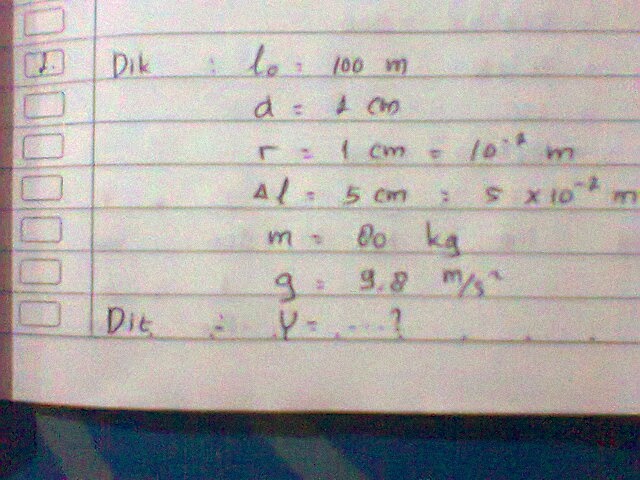 1. Dik : l₀ = 100 m
d = 2 cm
r = 1 cm = 10⁻² m
Δl = 5 cm = 5 x 10⁻² m
m = 80 kg
g = 9.8 m/s²
Dit : Y = ....?